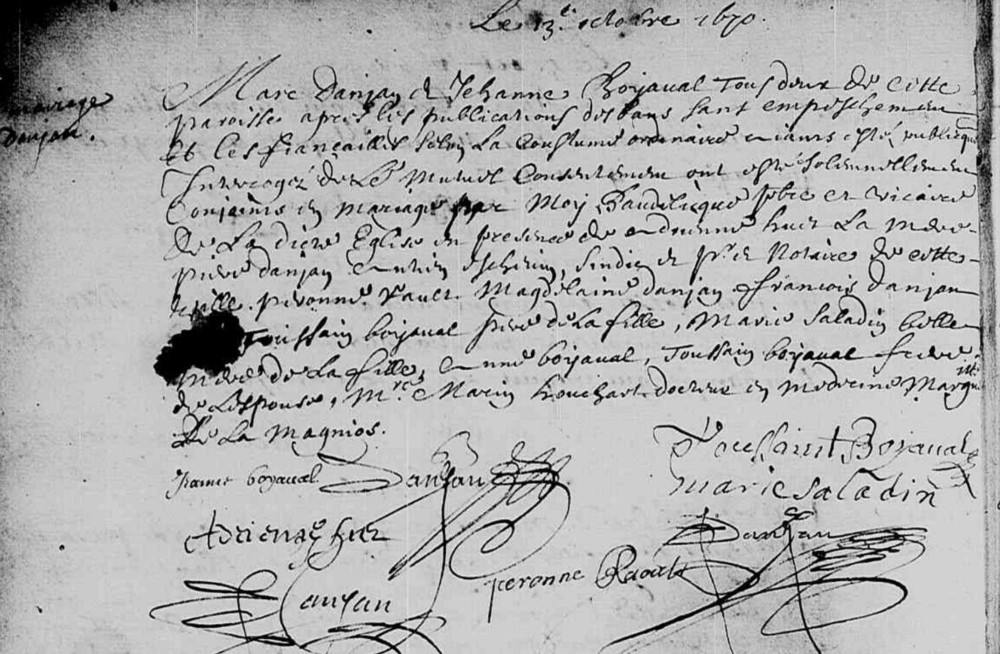 Le 13.e octobre 1670.
mariage
Danjan.
Marc Danjan et Jehanne Boyaval Tous deux de cette
paroisse apres les publications des bans sans empeschemen
et les fiançailles selon La Coustume ordinaire esté publicque
Interrogez de Le Mutuel Consentemen ont este solemnellemen
Conjoints en mariage par Moy Baudelicque pbre et vicaire
de La dicte Eglise en presence de Adrienne huer La mere
piere danjan Eschevin, sindic et Notaire de cette
ville. peronne rault. Magdelaine danjan francois danjan
Toussain boyaval pere de La fille, Marie Saladin belle
mere de La fille, anne boyaval, Toussain boyaval frere
de Lespouse, Mre Marin houchart docteur en medecine
De La Magnios.
Jeanne boyaval Danjan
Toussaint Boyaval
marie saladin
Adriene huer
Danjan
peronne Raoult
Danjan